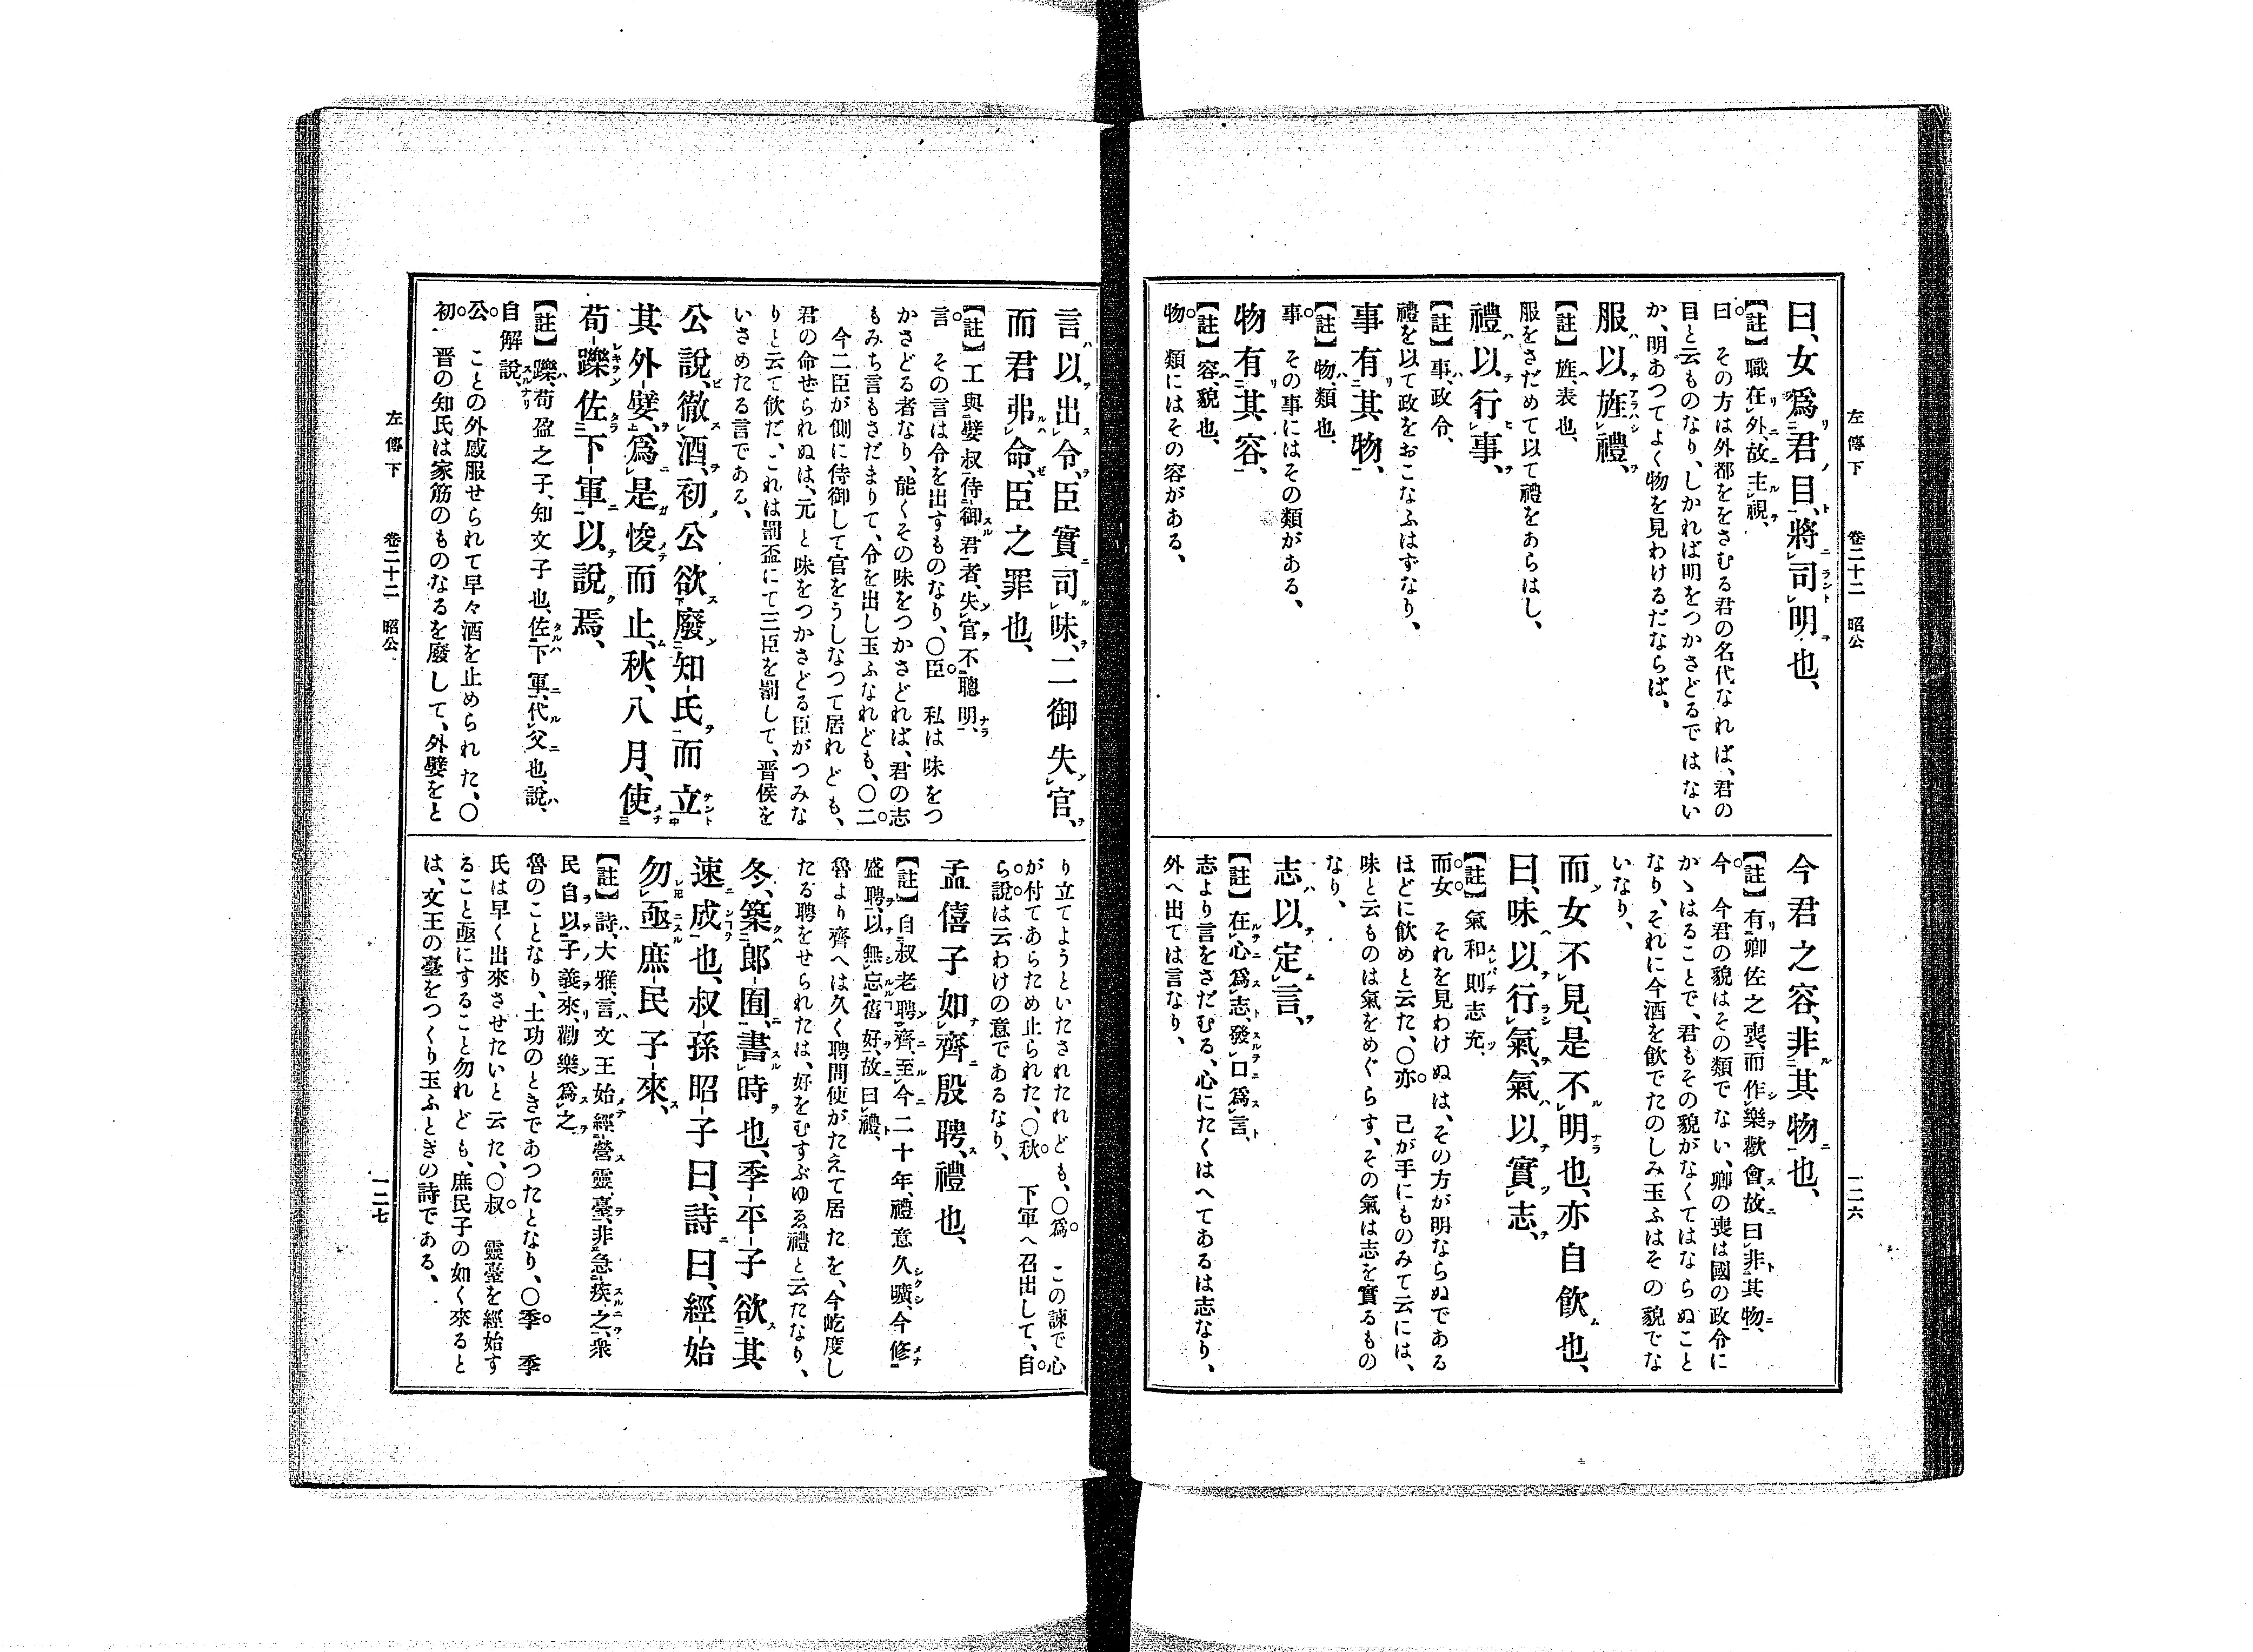 左傳下 卷二十二 昭公 一二六
曰、女爲君目、將司明也、
【註】職在外、故主視、
曰 その方は外都ををさむる君の名代なれば、君の
目と云ものなり、しかれば明をつかさどるではない
か、明あつてよく物を見わけるだならば、
服以旌禮、
【註】旌、表也、
服をさだめて以て禮をあらはし、
禮以行事、
【註】事、政令、
禮を以て政をおこなふはずなり、
事有其物、
【註】物、類也、
事 その事にはその類がある、
物有其容、
【註】容、貌也、
物 類にはその容がある、
今君之容、非其物也、
【註】有卿佐之喪、而作樂歡會、故曰非其物、
今 今君の貌はその類でない、卿の喪は國の政令に
かゝはることで、君もその貌がなくてはならぬこと
なり、それに今酒を飮でたのしみ玉ふはその貌でな
いなり、
而女不見、是不明也、亦自飮也、
曰、味以行氣、氣以實志、
【註】氣和則志充、
而女 それを見わけぬは、その方が明ならぬである
ほどに飮めと云た、〇亦 己が手にものみて云には、
味と云ものは氣をめぐらす、その氣は志を實るもの
なり、
志以定言、
【註】在心爲志、發口爲言、
志より言をさだむる、心にたくはへてあるは志なり、
外へ出ては言なり、
言以出令、臣實司味、二御失官、
而君弗命、臣之罪也、
【註】工與嬖叔侍御君者、失官不聰明、
言 その言は令を出すものなり、〇臣 私は味をつ
かさどる者なり、能くその味をつかさどれば、君の志
もみち言もさだまりて、令を出し玉ふなれども、〇二
今二臣が側に侍御して官をうしなつて居れども、
君の命ぜられぬは、元と味をつかさどる臣がつみな
りと云て飮だ、これは罰盃にて三臣を罰して、晉侯を
いさめたる言である、
公說、徹酒、初公欲廢知氏而立
其外嬖、爲是悛而止、秋、八月、使
荀躒佐下軍以說焉、
【註】躒、荀盈之子、知文子也、佐下軍、代父也、說、
自解說、
公 ことの外感服せられて早々酒を止められた、〇
初 晉の知氏は家筋のものなるを廢して、外嬖をと
り立てようといたされたれども、〇爲 この諫で心
が付てあらため止られた、〇秋 下軍へ召出して、自
ら說は云わけの意であるなり、
孟僖子如齊殷聘、禮也、
【註】自叔老聘齊、至今二十年、禮意久曠、今修
盛聘、以無忘舊好、故曰禮、
魯より齊へは久く聘問使がたえて居たを、今屹度し
たる聘をせられたは、好をむすぶゆゑ禮と云たなり、
冬、築郎囿、書時也、季平子欲其
速成也、叔孫昭子曰、詩曰、經始
勿亟、庶民子來、
【註】詩、大雅、言文王始經營靈臺、非急疾之、衆
民自以子義來、勸樂爲之、
魯のことなり、土功のときであつたとなり、〇季 季
氏は早く出來させたいと云た、〇叔 靈臺を經始す
ること亟にすること勿れども、庶民子の如く來ると
は、文王の臺をつくり玉ふときの詩である、
左傳下 卷二十二 昭公 一二七